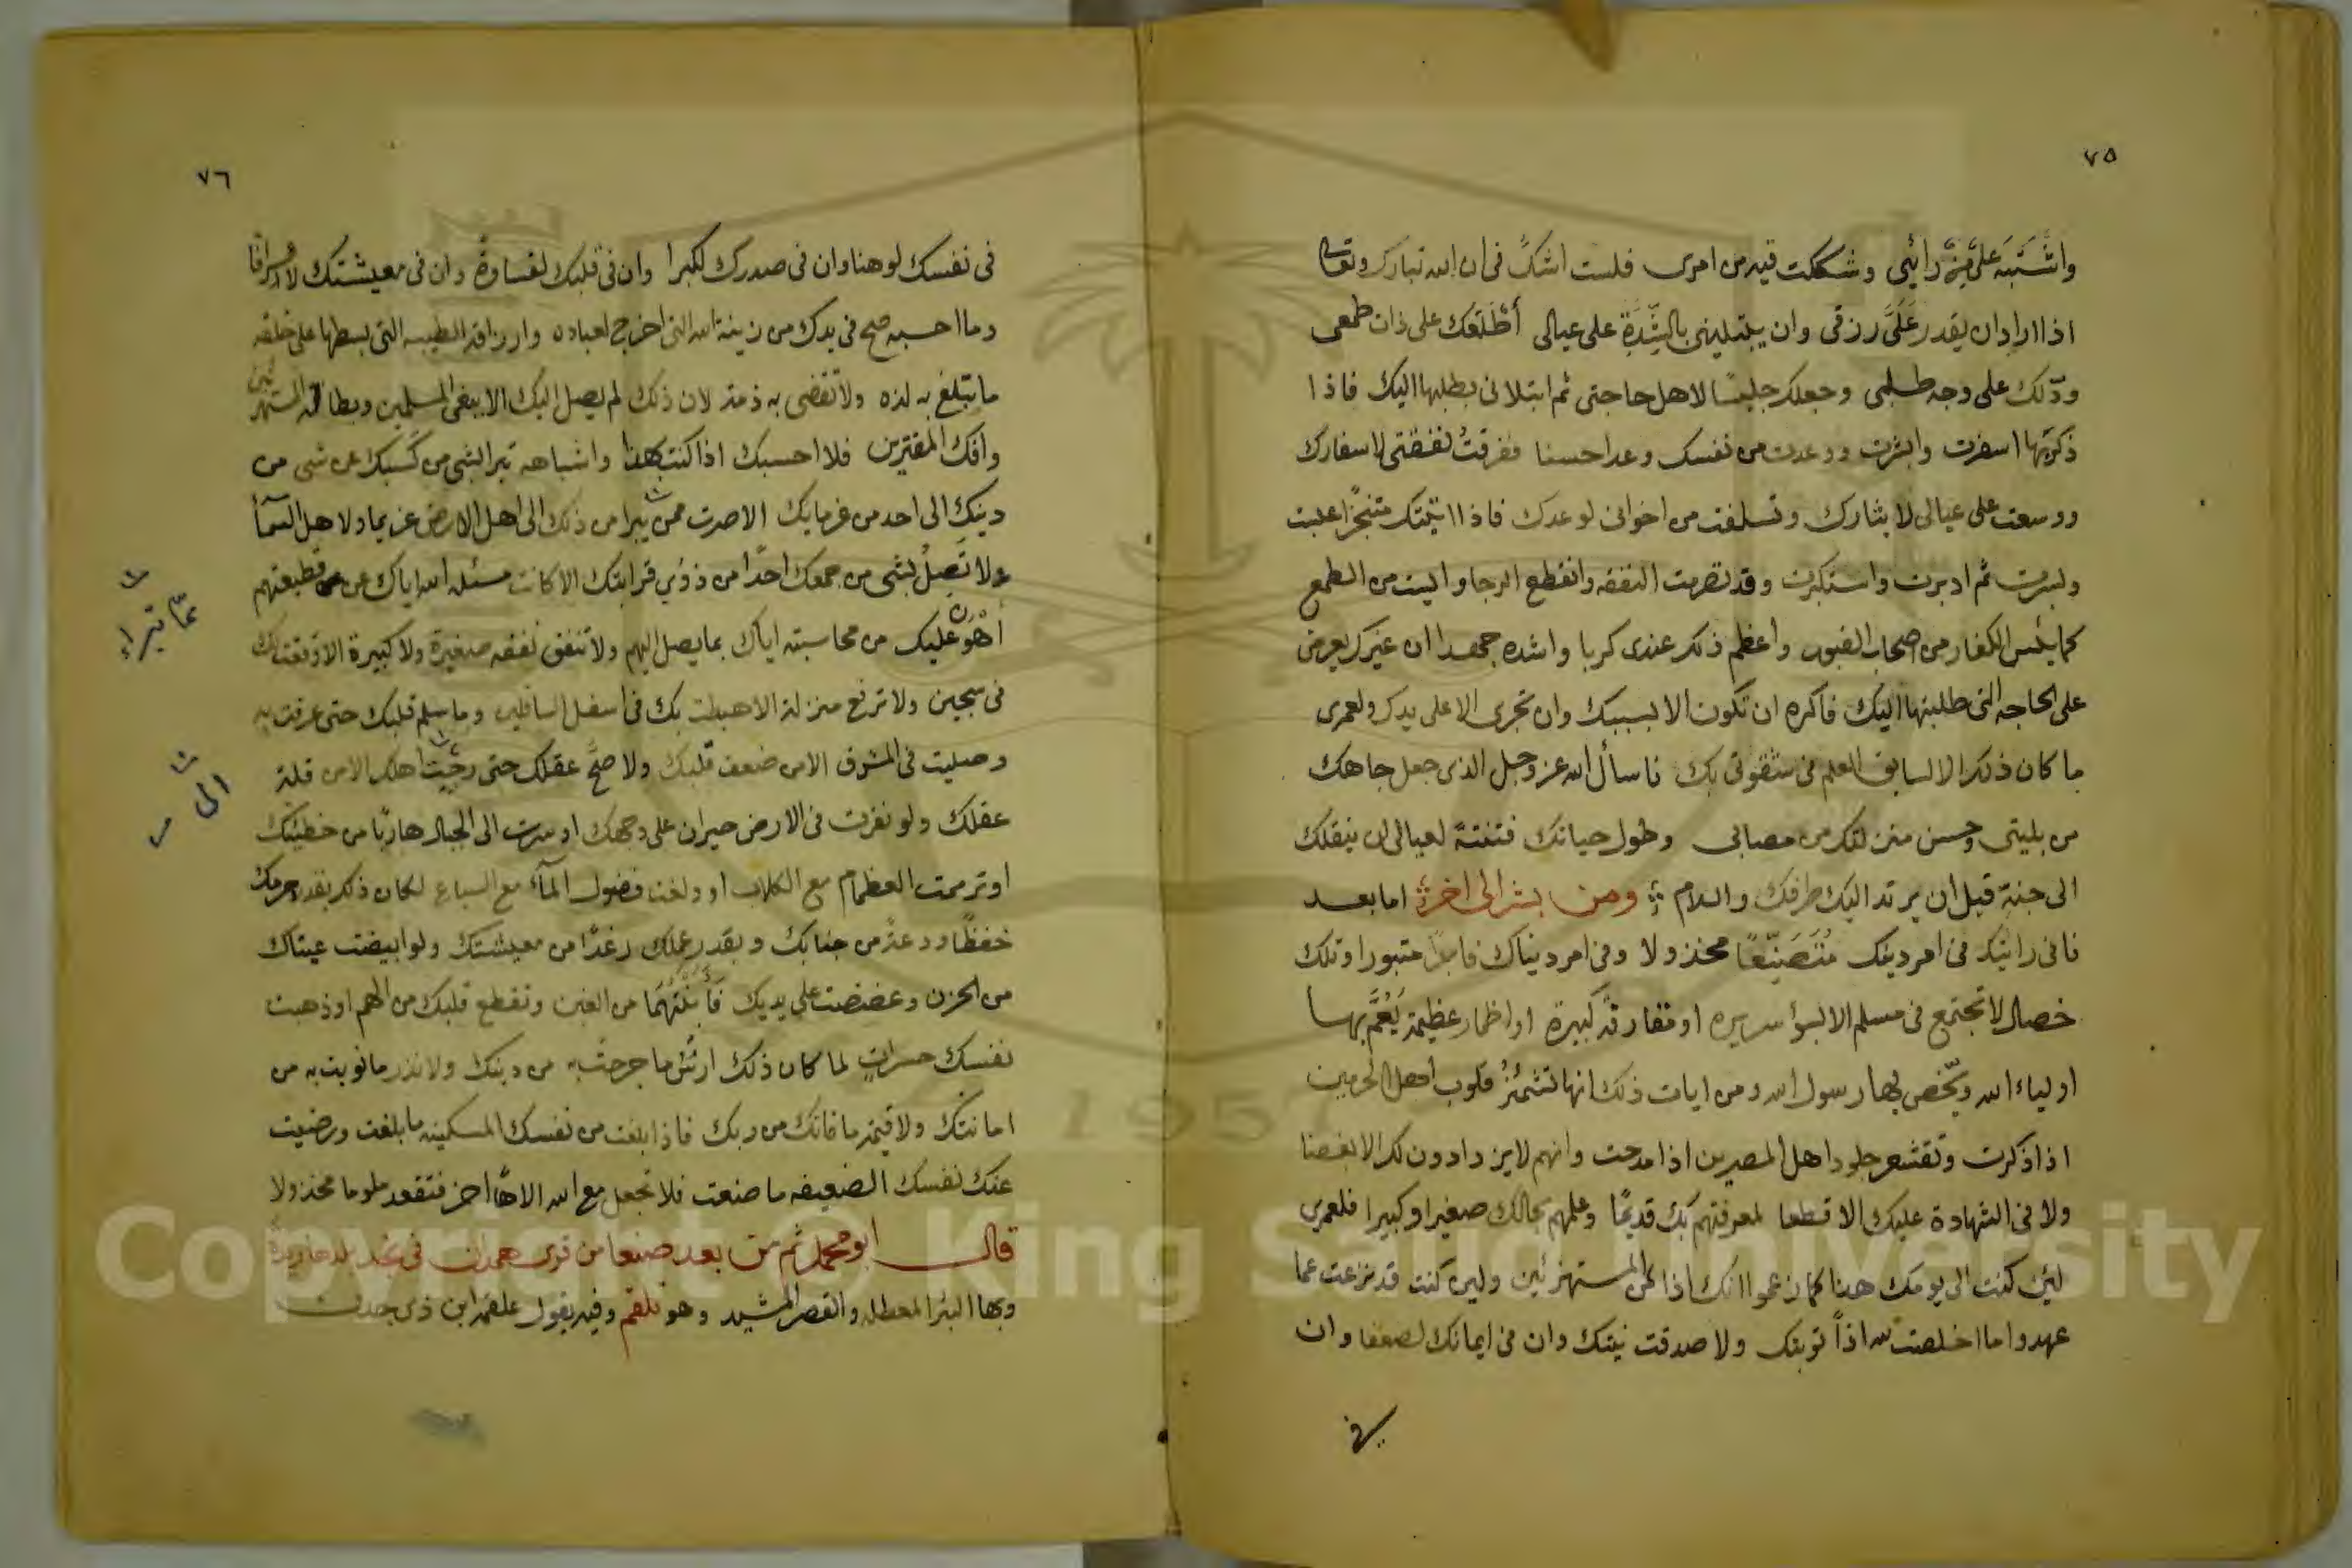 ٧٥
واشتبه على فيه رائي وشككت فيه من امرى فلست اشك فى ان الله تبارك وتعالى
اذا اراد ان يقدر على رزقى وان يبتلينى بالشدة على عيالى أطلعك على ذات طمعى
ودلك على وجه طلبى وجعلك جليسا لاهل حاجتى ثم ابتلانى بطلبها اليك فاذا
ذكرتها اسفرت وابشرت ووعدت من نفسك وعدا حسنا ففرقت نفقتى لاسفارك
ووسعت على عيالى لابشارك وتسلفت من اخوانى لوعدك فاذا اتيتك متنجزا عبست
وبسرت ثم ادبرت واستكبرت وقد تصرمت النفقه وانقطع الرجا وايست من الطمع
كما يئس الكفار من اصحاب القبور واعظم ذلك عندى كربا واشده جهدا ان غيرك يعرض
على الحاجه التى طلبتها اليك فاكره ان تكون الا بسببك وان تجرى الا على يدك ولعمرى
ما كان ذلك الا لسابق العلم فى شقوتى بك فاسأل الله عز وجل الذى جعل جاهك
من بليتى وحسن منزلتك من مصائبى وطول حياتك فتنة لعيالى ان ينقلك
الى جنته قبل ان يرتد اليك طرفك والسلام ومن بشر الى اخر اما بعد
فانى رايتك فى امر دينك متصنعا مخذولا وفى امر دنياك فاجرا مثبورا وتلك
خصال لا تجتمع فى مسلم الا لسؤ سريره او مقارفة كبيرة او اظهار عظيمة يعم بها
اولياء الله ويخص بها رسول الله ومن ايات ذلك انها تشمئز قلوب اهل الحرمين
اذا ذكرت وتقشعر جلود اهل المصرين اذا مدحت وانهم لا يزدادون لك الا بغضا
ولا فى الشهادة عليك الا قطعا لمعرفتهم بك قديما وعلمهم بحالك صغيرا وكبيرا فلعمرى
لئن كنت الى يومك هذا كما زعموا انك اذا لمن المستهزئين ولئن كنت قد نزعت عما
عهدوا ما اخلصت لله اذاً توبتك ولا صدقت نيتك وان فى ايمانك لضعفا وان
فى
٧٦
فى نفسك لوهنا وان فى صدرك لكبرا وان فى قلبك لقساوة وان فى معيشتك لاسرافا
وما احسبه صح فى يدك من زينة الله التى اخرج لعباده وارزاقه الطيبه التى بسطها على خلقه
ما تبلغ به لذه ولا تقضى به ذمة لان ذلك لم يصل اليك الا ببغى المسلمين وبطانة المستهزئين
وافك المفترين فلا احسبك اذا كنت هكذا واشباهه تبرا لشى من كسبك عن شى من
دينك الى احد من غرمايك الا صرت ممن يبرا من ذلك الى اهل الارض غريما ولاهل السمآ
ولا تصل بشى من جمعك احدا من ذوى قرابتك الا كانت مسئلة الله اياك عن قطيعتهم
أهون عليك من محاسبته اياك بما يصل اليهم ولا تنفق نفقه صغيرة ولا كبيرة الا وقعت بك
فى سجين ولا ترفع منزلة الا هبطت بك فى اسفل السافلين وما سلم قلبك حتى عرفت به
وصليت فى المشرق الا من ضعف قلبك ولا صح عقلك حتى رجيت اهلك الا من قلة
عقلك ولو نفرت فى الارض حيران على وجهك او سرت الى الجبال هاربا من خطيئتك
او ترممت العظام مع الكلاب او ولغت فضول المآء مع السباع لكان ذلك بقدر جرمك
خفظا ودعة من جنابك وبقدر عملك رغدا من معيشتك ولو ابيضت عيناك
من الحزن وعضضت على يديك فأبنتهما من الغبن وتقطع قلبك من الهم او ذهبت
نفسك حسرات لما كان ذلك ارش ما جرحت به من دينك ولا نذر ما نويت به من
امانتك ولا قيمة ما فاتك من ربك فاذا بلغت من نفسك المسكينه ما بلغت ورضيت
عنك نفسك الضعيفه ما صنعت فلا تجعل مع الله الاهاً اخر فتقعد ملوما مخذولا
قال ابو محمد ثم من بعد صنعا من قرى همدان فى نجد بلد ها ريدة
وبها البئر المعطله والقصر المشيد وهو تلقم وفيه يقول علقمه ابن ذى جدن
عما تبراء
الى